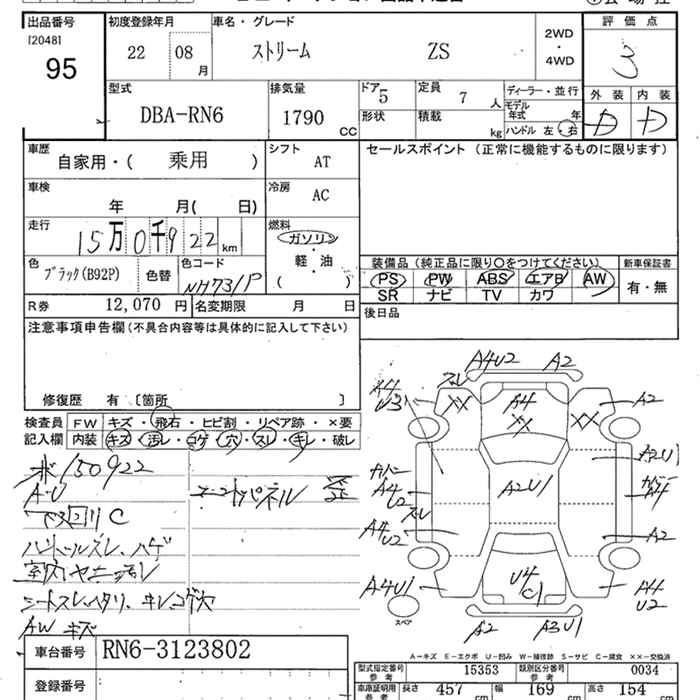 出品番号 初度登録年月 車名・グレード 評価点
[2048] 22 08 月 ストリーム ZS 2WD・4WD 3
95
型式 排気量 ドア 5 定員 7 人 ディーラー・並行 外装 内装
DBA-RN6 1790 CC 形状 積載 kg モデル年式 年 D D
ハンドル 左・右
車歴 自家用・( 乗用 ) シフト AT セールスポイント (正常に機能するものに限ります)
車検 年 月( 日) 冷房 AC
走行 15万0千922 km 燃料 ガソリン・軽・油 ( )
色 ブラック(B92P) 色替 色コード NH731P
装備品(純正品に限り○をつけてください) 新車保証書
PS PW ABS エアB AW 有・無
SR ナビ TV カワ
R券 12,070 円 名変期限 月 日 後日品
注意事項申告欄(不具合内容等は具体的に記入して下さい)
修復歴 有 〔箇所 〕
検査員記入欄 FW キズ・飛石・ヒビ割・リペア跡・×要
内装 キズ・汚レ・コゲ・穴・スレ・キレ・破レ
150922
A・U
下回りC
ハンドルスレ、ハゲ
AW キズ
A4U2 A2
A4 U3 スレ XX A4 XX XX A2
カバー A4 U2 A2U1 A2U1 カバー A4
スレ A4U2 A2
A4U1 U4 C1 A4 U2
スペア A2 A3U1
A-キズ E-エクボ U-凹み W-補修跡 S-サビ C-腐食 ××-交換済
車台番号 RN6-3123802
型式指定番号 参考 15353 類別区分番号 参考 0034
登録番号
車庫証明用 参考 長さ 457 cm 幅 169 cm 高さ 154 cm